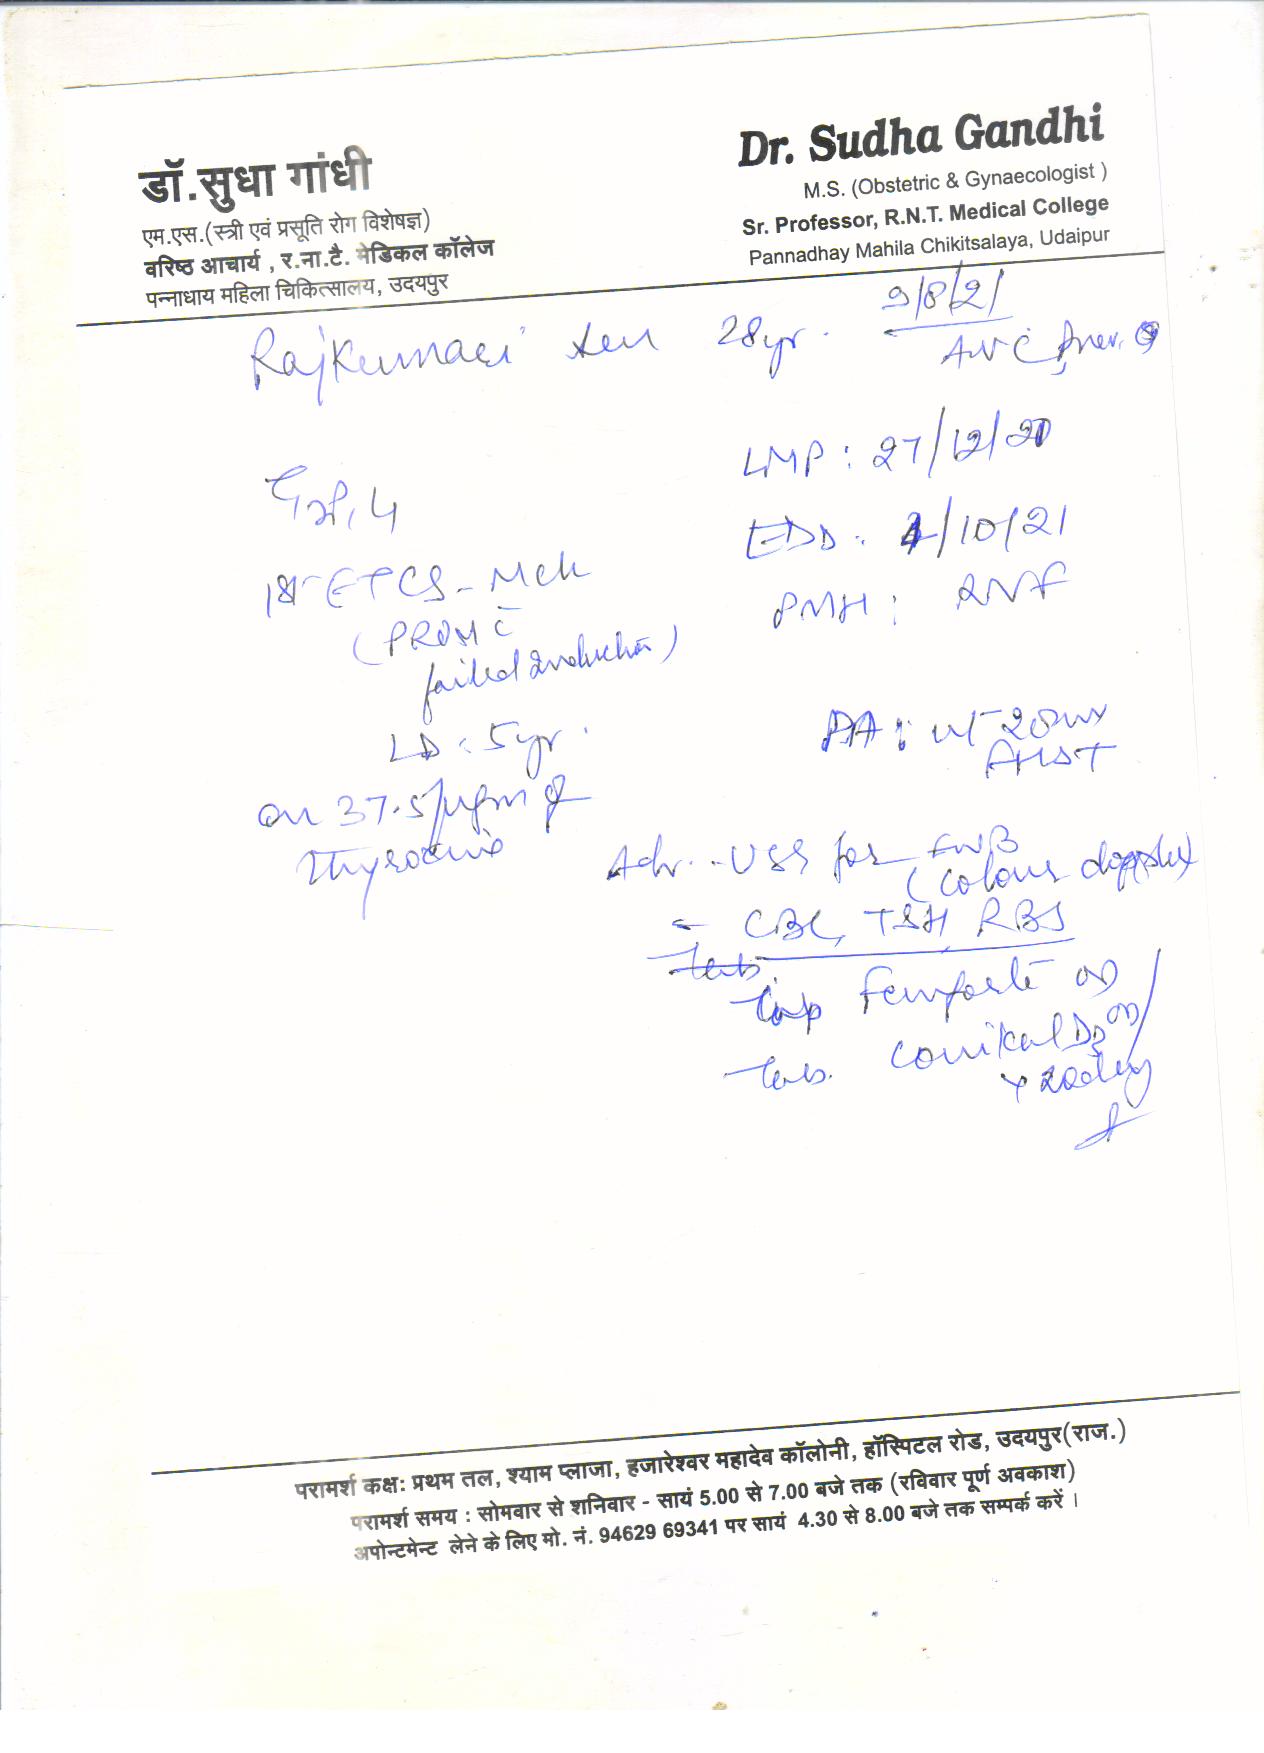 डॉ.सुधा गांधी
एम.एस.(स्त्री एवं प्रसूति रोग विशेषज्ञ)
वरिष्ठ आचार्य , र.ना.टै. मेडिकल कॉलेज
पन्नाधाय महिला चिकित्सालय, उदयपुर
Dr. Sudha Gandhi
M.S. (Obstetric & Gynaecologist )
Sr. Professor, R.N.T. Medical College
Pannadhay Mahila Chikitsalaya, Udaipur
9/8/21
Rajkumari Sen 28yr.
LMP : 27/12/20
EDD : /10/21
PMH :
1st
(PROM c̄
failed induction)
LD : 5yr.
on 37.5 µgm of
thyroxine
PA :
Adv. - USS for FWB
(colour doppler)
- CBC, TSH, RBS
Tab.
Cap OD
Tab. OD
x 20day
परामर्श कक्ष: प्रथम तल, श्याम प्लाजा, हजारेश्वर महादेव कॉलोनी, हॉस्पिटल रोड, उदयपुर(राज.)
परामर्श समय : सोमवार से शनिवार - सायं 5.00 से 7.00 बजे तक (रविवार पूर्ण अवकाश)
अपोन्टमेन्ट लेने के लिए मो. नं. 94629 69341 पर सायं 4.30 से 8.00 बजे तक सम्पर्क करें ।